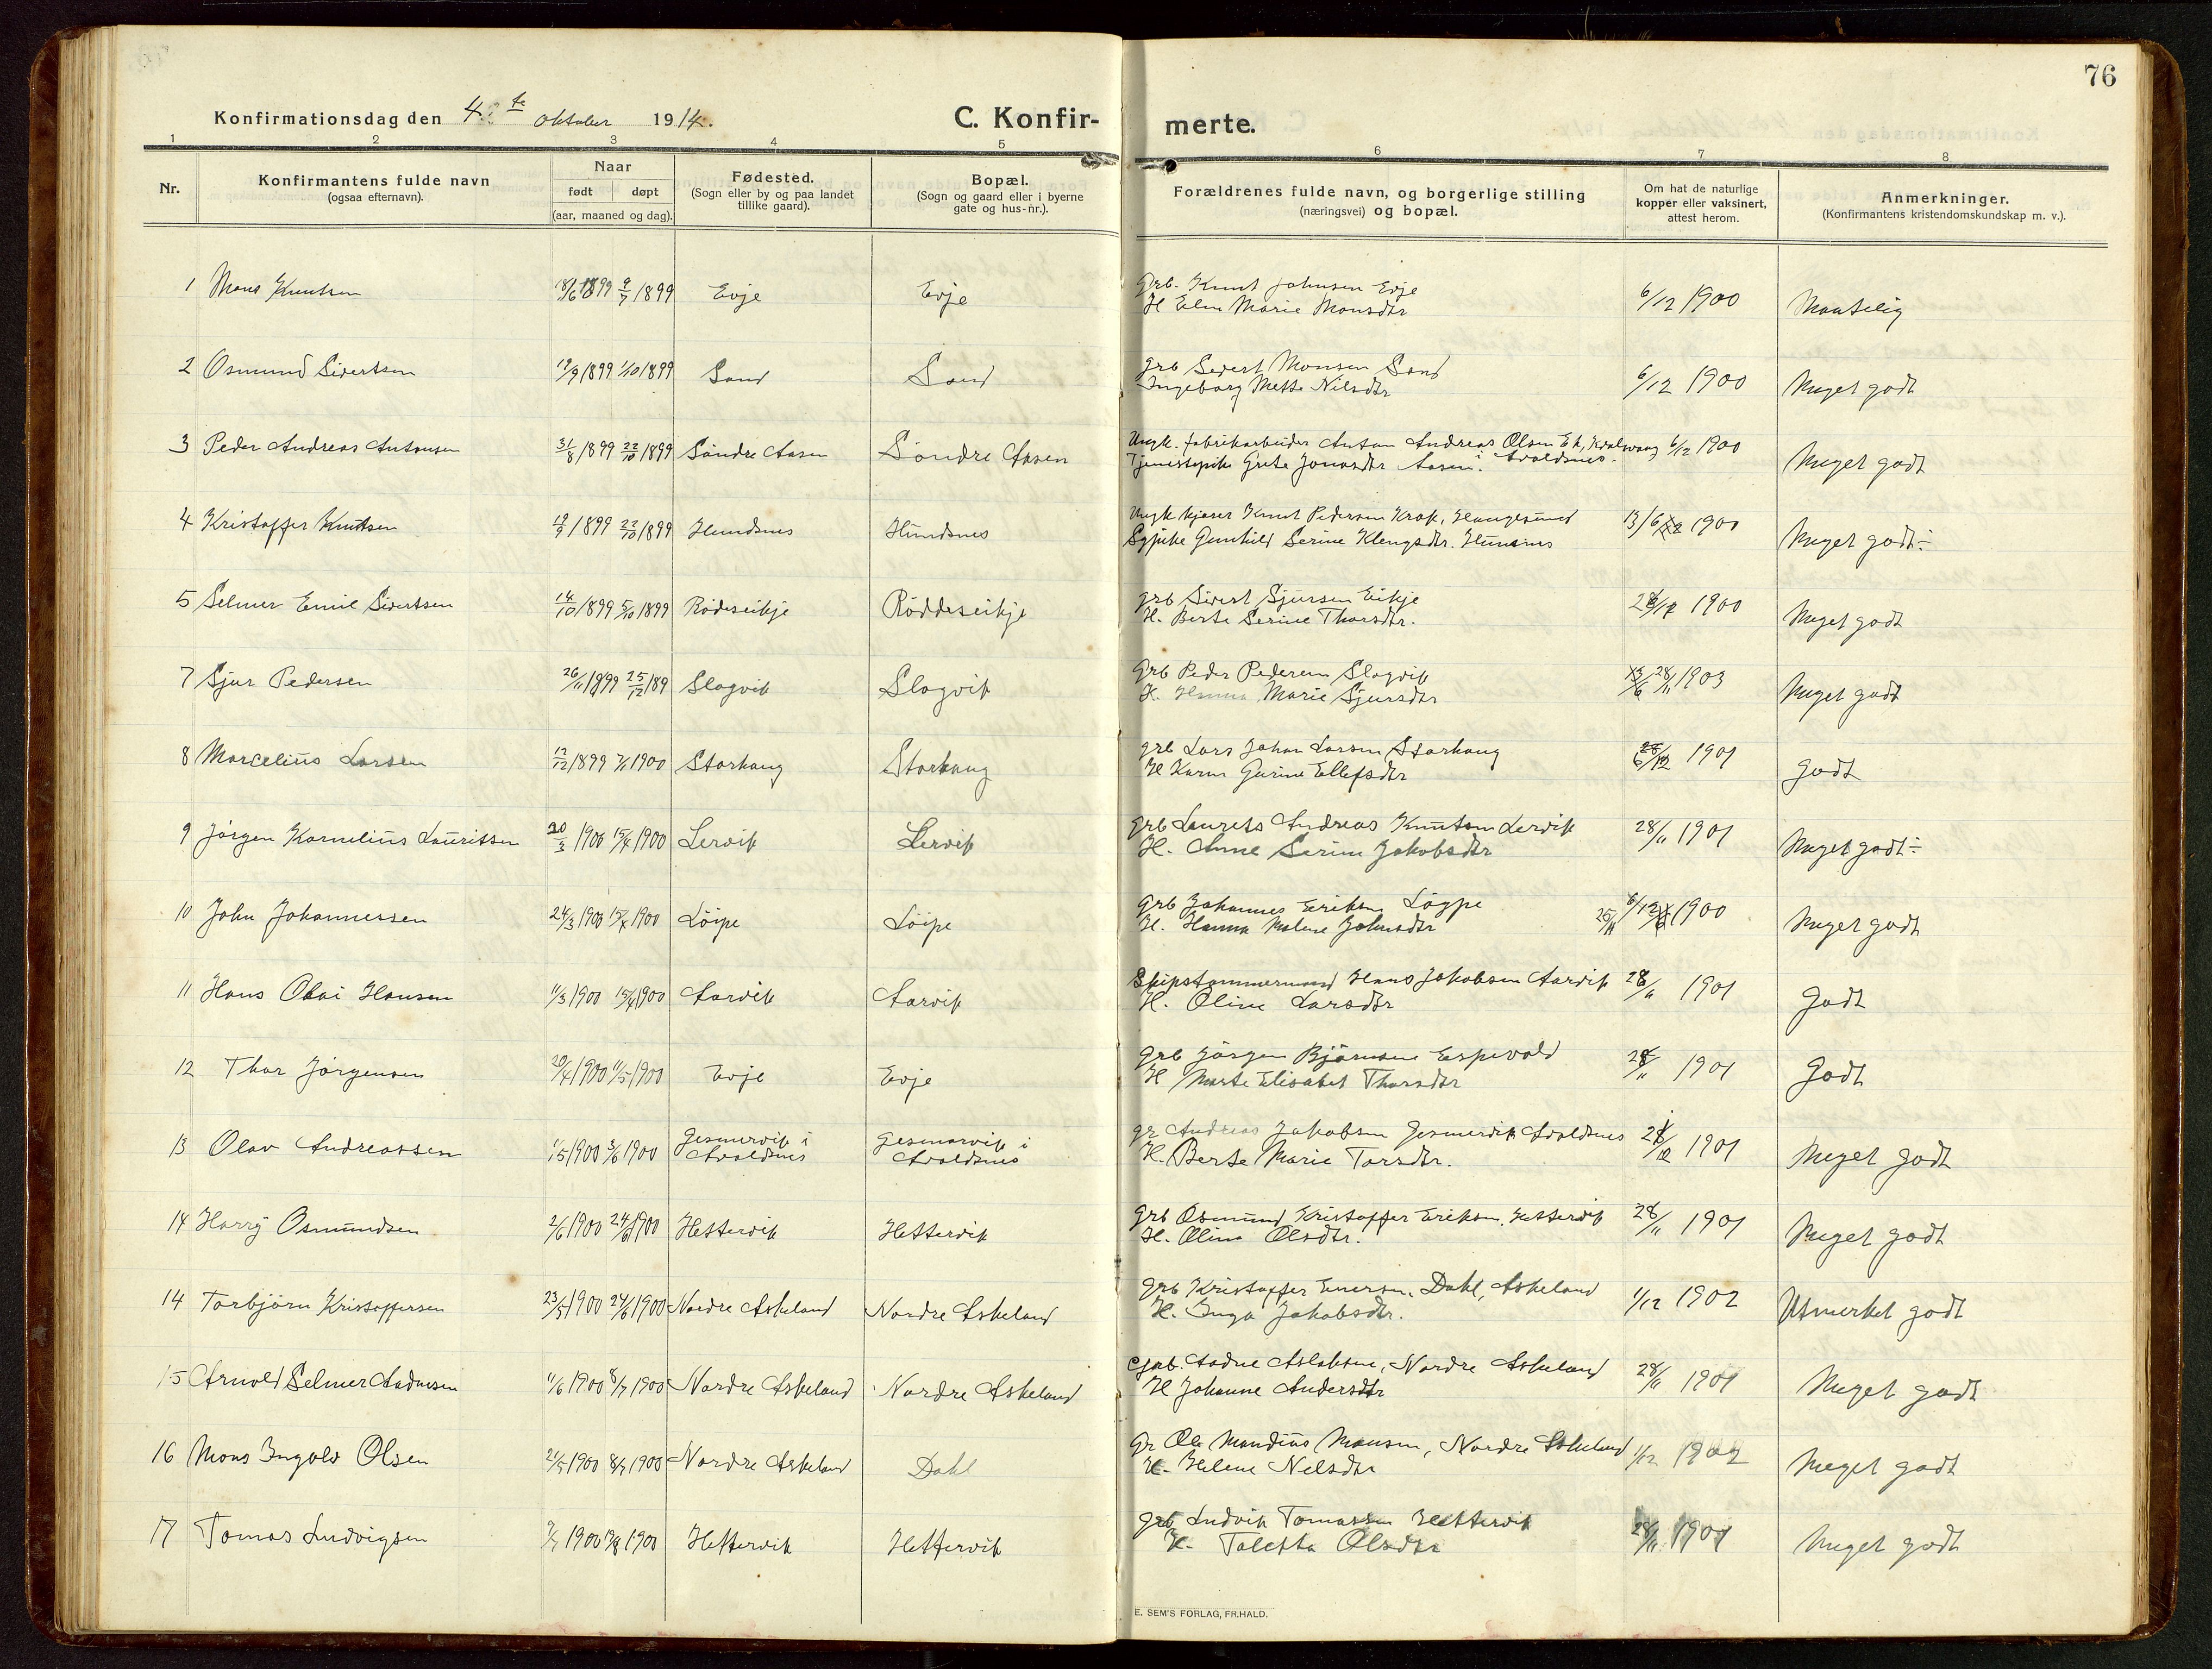 76
Konfirmationsdag den 4de oktober 1914.
C. Konfir-
merte.
1 2 3 4 5 6 7 8
Nr.
Konfirmantens fulde navn
(ogsaa efternavn).
Naar
født døpt
(aar, maaned og dag).
Fødested.
(Sogn eller by og paa landet
tillike gaard).
Bopæl.
(Sogn og gaard eller i byerne
gate og hus-nr.).
Forældrenes fulde navn, og borgerlige stilling
(næringsvei) og bopæl.
Om hat de naturlige
kopper eller vaksinert,
attest herom.
Anmerkninger.
(Konfirmantens kristendomskundskap m. v.).
1 Mons Knutsen 18/6 1899 9/7 1899 Evje Evje
Grb. Knut Johnsen Evje
H Elen Marie Monsdtr
6/12 1900 Maatelig
2 Osmund Sivertsen 19/9 1899 1/10 1899 Sand Sand
grb Sivert Monsen Sand
Ingeborg Mette Nilsdtr
6/12 1900 Meget godt
3 Peder Andreas Antonsen 31/8 1899 22/10 1899 Søndre Aasen Søndre Aasen
Ungk. fabrikarbeider Anton Andreas Olsen Ek, Kvalavaag
Tjenestepike Grete Jonasdtr Aasen. i Avaldsnes.
6/12 1900 Meget godt
4 Kristoffer Knutsen 19/9 1899 22/10 1899 Hundsnes Hundsnes
Ungk kjører Knut Pedersen Krak, Haugesund
Sypike Gunhild Serine Klengsdtr. Hunsnes
13/6 1900 Meget godt ÷
5 Selmer Emil Sivertsen 14/10 1899 5/10 1899 Rödeseikje Röddeseikje
grb Sivert Sjursen Eikje
H. Berte Serine Thorsdtr.
1900 Meget godt
7 Sjur Pedersen 26/11 1899 25/12 189 Slogvik Slogvik
Grb Peder Pedersen Slogvik
H. Hanna Marie Sjursdtr
28/11 1903 Meget godt
8 Marcelius Larsen 12/12 1899 7/1 1900 Storhaug Storhaug
grb Lars Johan Larsen Storhaug
H Karen Gurine Ellefsdtr
1901 godt
9 Jörgen Kornelius Lauritsen 20/3 1900 15/4 1900 Lervik Lervik
Grb Laurets Andreas Knutsen Lervik
H. Anne Serine Jakobsdtr
28/11 1901 Meget godt ÷
10 John Johannessen 24/3 1900 15/4 1900 Löipe Löipe
Grb Johannes Eriksen Löype
H. Hanna Malene Johnsdtr
6/12 1900 Meget godt
11 Hans Olai Hansen 11/3 1900 15/4 1900 Aarvik Aarvik
Skipstømmermand Hans Jakobsen Aarvik
H. Oline Larsdtr
28/11 1901 Godt
12 Thor Jörgensen 20/4 1900 11/5 1900 Evje Evje
grb Jörgen Björnsen Espevold
H Marte Elisabet Thorsdtr
28/11 1901 Godt
13 Olav Andreassen 1/5 1900 3/6 1900 Gesmervik i Avaldsnes Gesmarvik i Avaldsnes
gr Andreas Jakobsen Gesmervik Avaldsnes
H. Berte Marie Torsdtr.
1901 Meget godt
14 Harry Osmundsen 2/6 1900 24/6 1900 Hettervik Hettervik
Grb Osmund Kristoffer Eriksen, Hettervik
H. Oline Olsdtr.
28/11 1901 Meget godt
14 Torbjörn Kristoffersen 23/5 1900 24/6 1900 Nordre Askeland Nordre Askeland
Grb Kristoffer Enersen, Dahl, Askeland
H. Inga Jakobsdtr.
1/12 1902 Utmerket godt
15 Arnold Selmer Aadnesen 11/6 1900 8/7 1900 Nordre Askeland Nordre Askeland
Grb. Aadne Aslaksen, Nordre Askeland
H Johanne Andersdtr
28/11 1901 Meget godt
16 Mons Ingolv Olsen 21/5 1900 8/7 1900 Nordre Askeland Dahl
Gr Ole Mandius Monsen, Nordre Askeland
H. Helene Nelsdtr
1/12 1902 Meget godt
17 Tomas Ludvigsen 7/7 1900 19/8 1900 Hettervik Hettervik
Grb Ludvik Tomassen Hettervik
H. Taletta Olsdtr
28/11 1901 Meget godt
E. SEM'S FORLAG, FR.HALD.